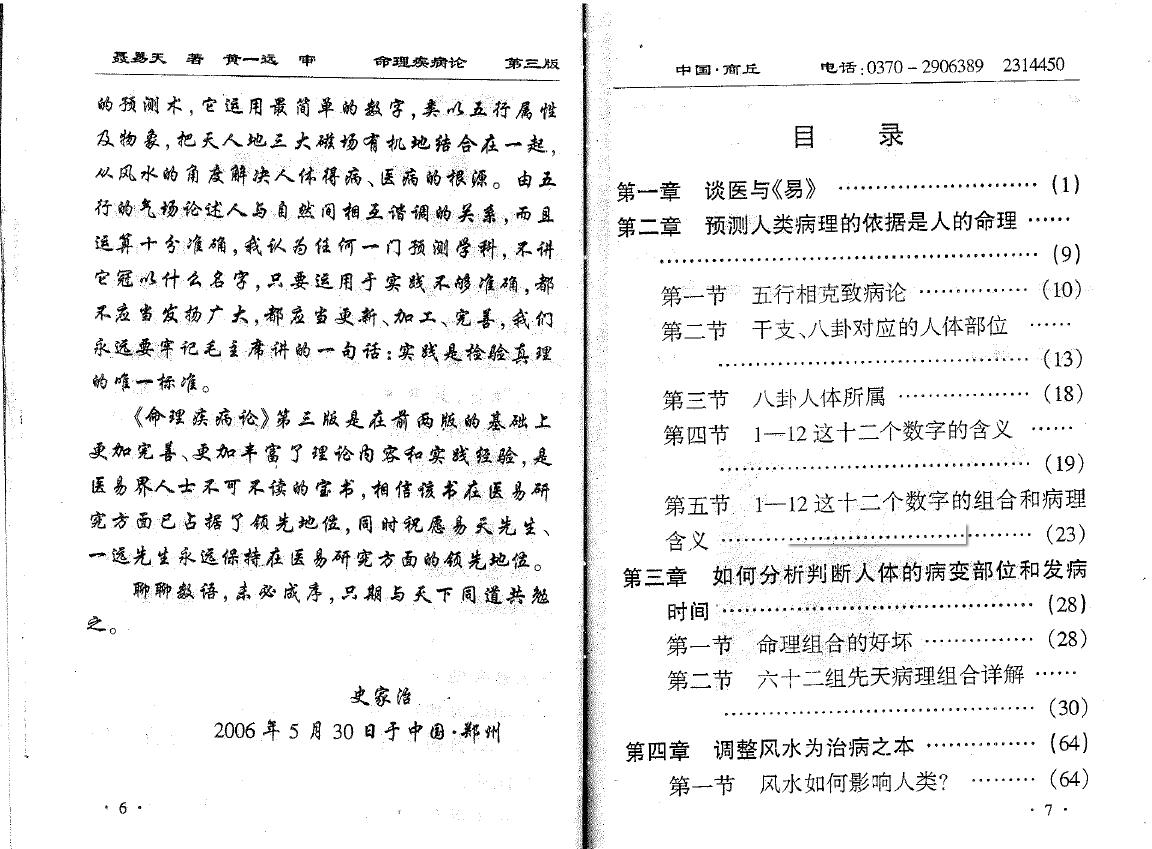 聂易天 著 黄一远 审 命理疾病论 第三版
的预测术，它运用最简单的数字，类以五行属性
及物象，把天人地三大磁场有机地结合在一起，
从风水的角度解决人体得病、医病的根源。由五
行的气场论述人与自然间相互谐调的关系，而且
运算十分准确，我认为任何一门预测学科，不讲
它冠以什么名字，只要运用于实践不够准确，都
不应当发扬广大，都应当更新、加工、完善，我们
永远要牢记毛主席讲的一句话：实践是检验真理
的唯一标准。
《命理疾病论》第三版是在前两版的基础上
更加完善、更加丰富了理论内容和实践经验，是
医易界人士不可不读的宝书，相信该书在医易研
究方面已占据了领先地位，同时祝愿易天先生、
一远先生永远保持在医易研究方面的领先地位。
聊聊数语，未必成序，只期与天下同道共勉
之。
史家治
2006年5月30日于中国·郑州
·6·
中国·商丘 电话：0370－2906389 2314450
目 录
第一章 谈医与《易》 ………………………… (1)
第二章 预测人类病理的依据是人的命理 ……
………………………………………………… (9)
第一节 五行相克致病论 …………… (10)
第二节 干支、八卦对应的人体部位 ……
……………………………………… (13)
第三节 八卦人体所属 ……………… (18)
第四节 1—12这十二个数字的含义 ……
……………………………………… (19)
第五节 1—12这十二个数字的组合和病理
含义 ……………………………………… (23)
第三章 如何分析判断人体的病变部位和发病
时间 ……………………………………… (28)
第一节 命理组合的好坏 …………… (28)
第二节 六十二组先天病理组合详解 ……
……………………………………… (30)
第四章 调整风水为治病之本 …………… (64)
第一节 风水如何影响人类？ ……… (64)
·7·